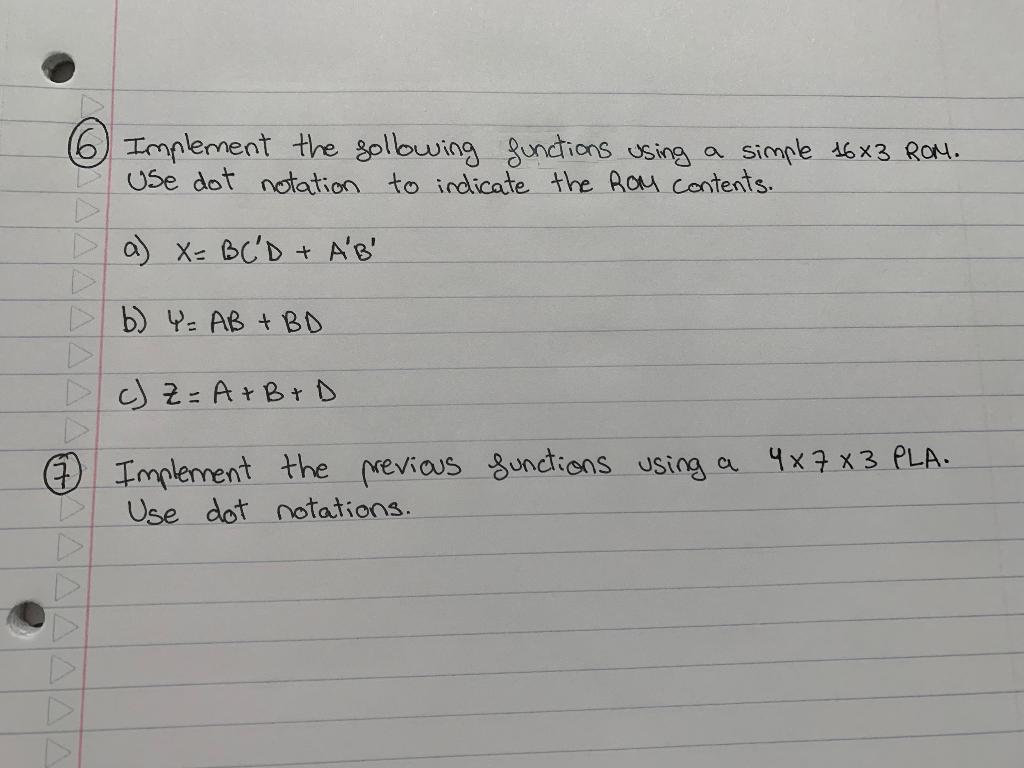 6 Implement the following functions using a simple 16x3 ROM.
Use dot notation to indicate the ROM contents.
a) X= BC'D + A'B'
b) Y= AB + BD
c) Z = A + B + D
7 Implement the previous functions using a 4x7x3 PLA.
Use dot notations.